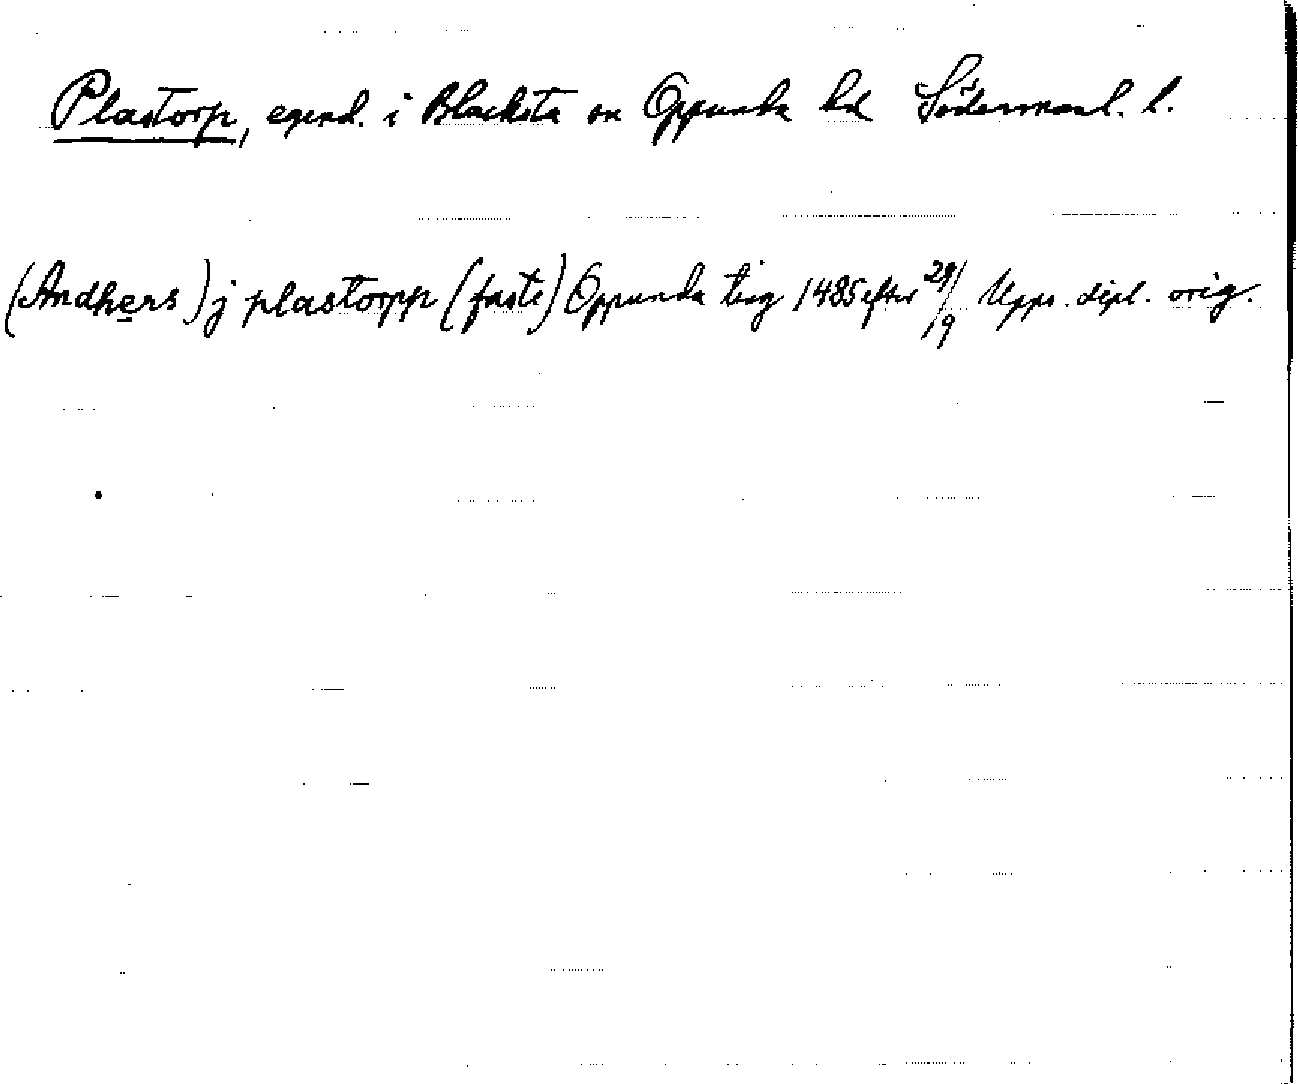 Plastorp, egend. i Blacksta sn Oppunda hd Södermanl. l.
(Andhers) j plastorpp (faste) Oppunda ting 1485 efter 29/9 Upps. dipl. orig.